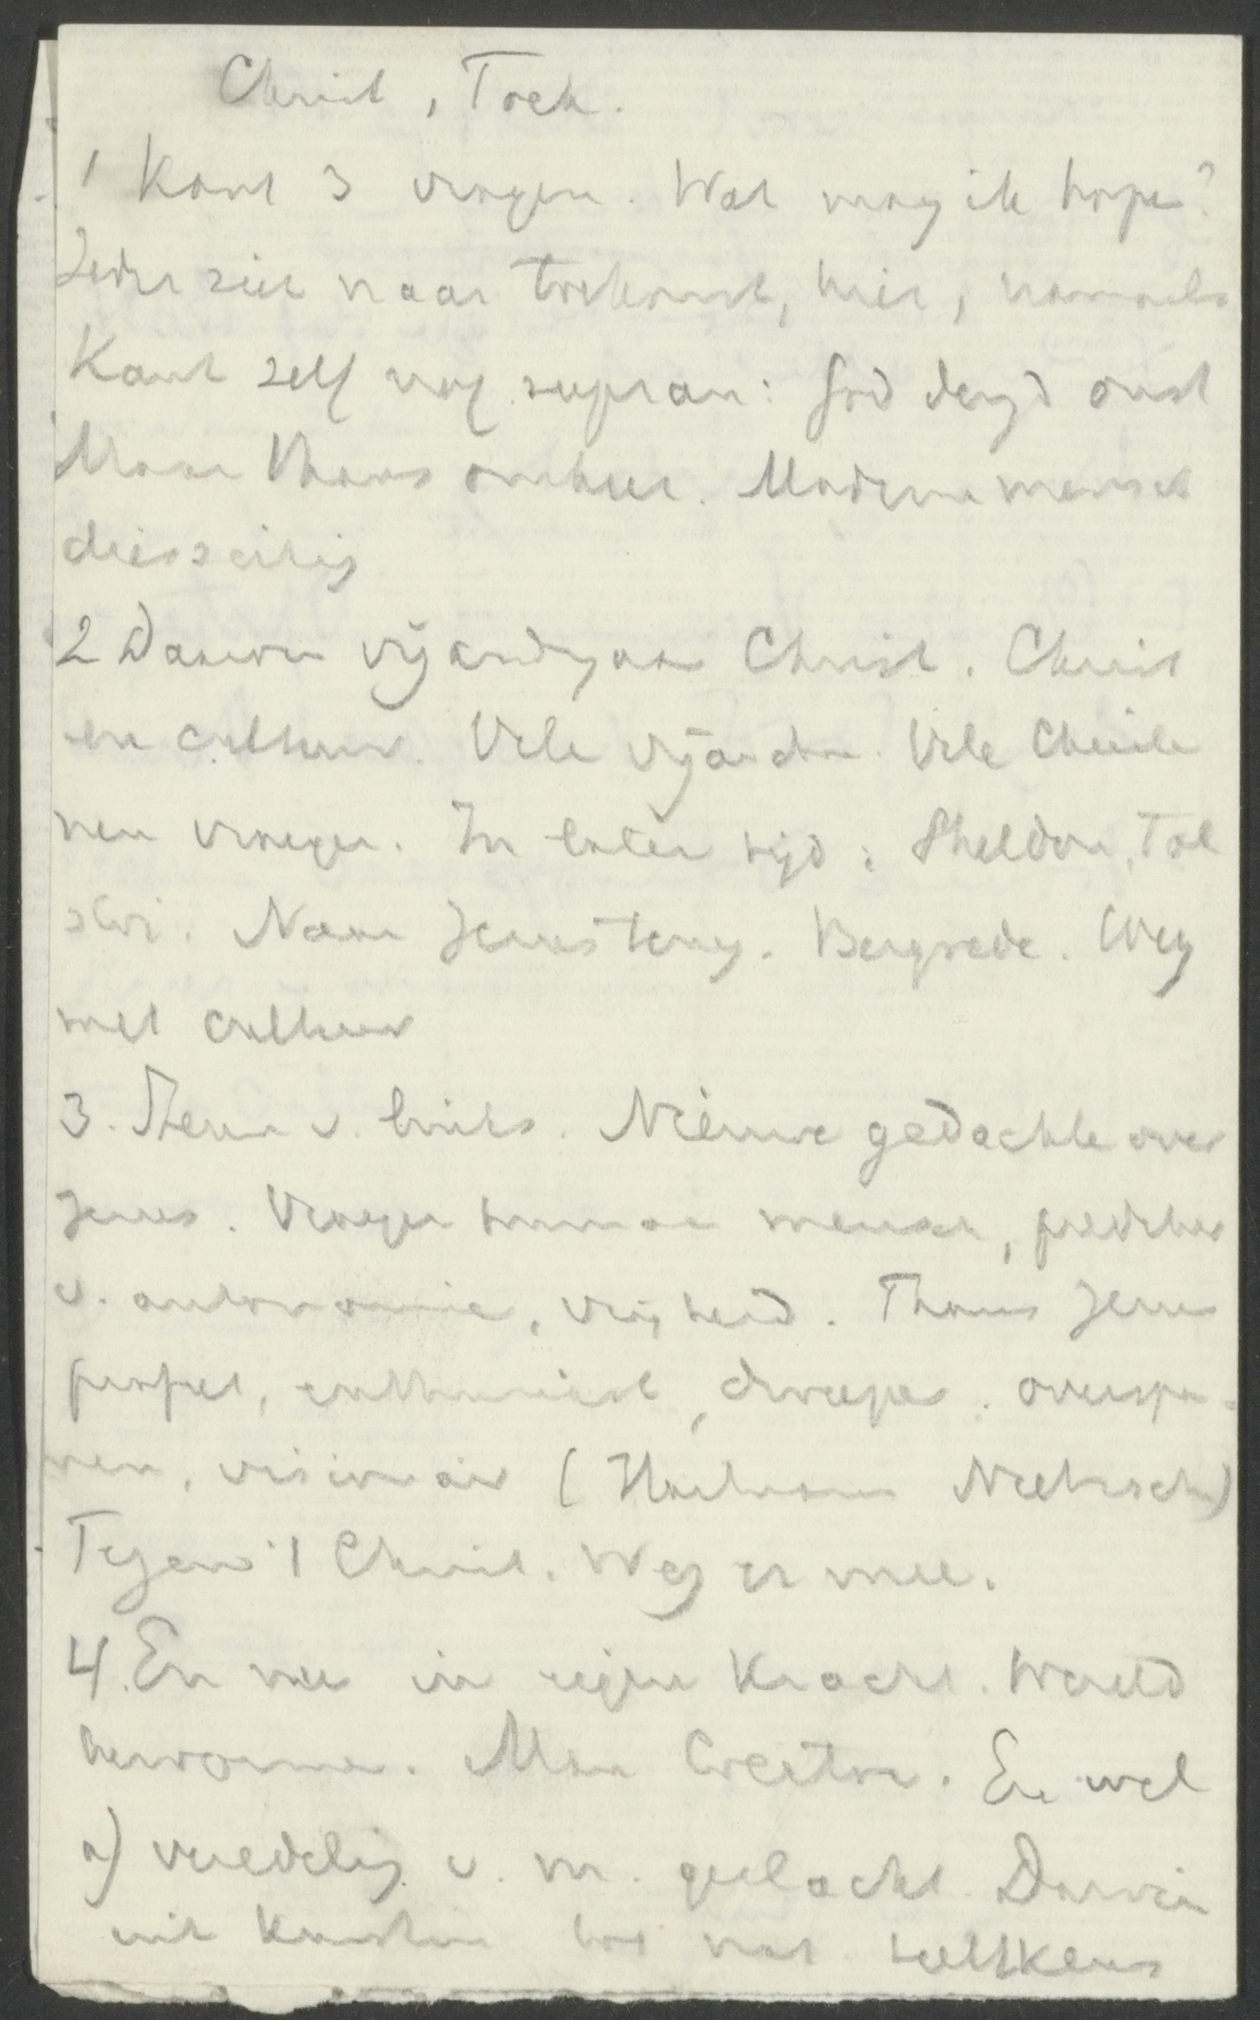 Christ, Toek.
1 Kant 3 vragen. Wat mag ik hopen?
Ieder ziet naar toekomst, hier, namaals
Kant zelf nog supran: God deugd onst
Maar thans omkeer. Moderne mensch
diesseitig
2 Daarom vijandig aan Christ. Christ
en cultuur. Vele vijanden. Vele Christe
nen vroeger. In later tijd: Sheldon, Tol
stoi. Naar Jezus terug. Bergrede. Weg
met cultuur
3. Steun v. links. Nieuwe gedachte over
Jezus. Vroeger humaan mensch, prediker
v. autonomie, vrijheid. Thans Jezus
profeet, enthusiast, dweeper, overspan-
nen, visionair (Hartmann Nietzsche)
Tegen 't Christ. Weg er mee.
4. En nu in eigen kracht. Wereld
hervormen. Man Creator. En wel
a) veredeling v. m. geslacht Darwin
uit nat seltkeus